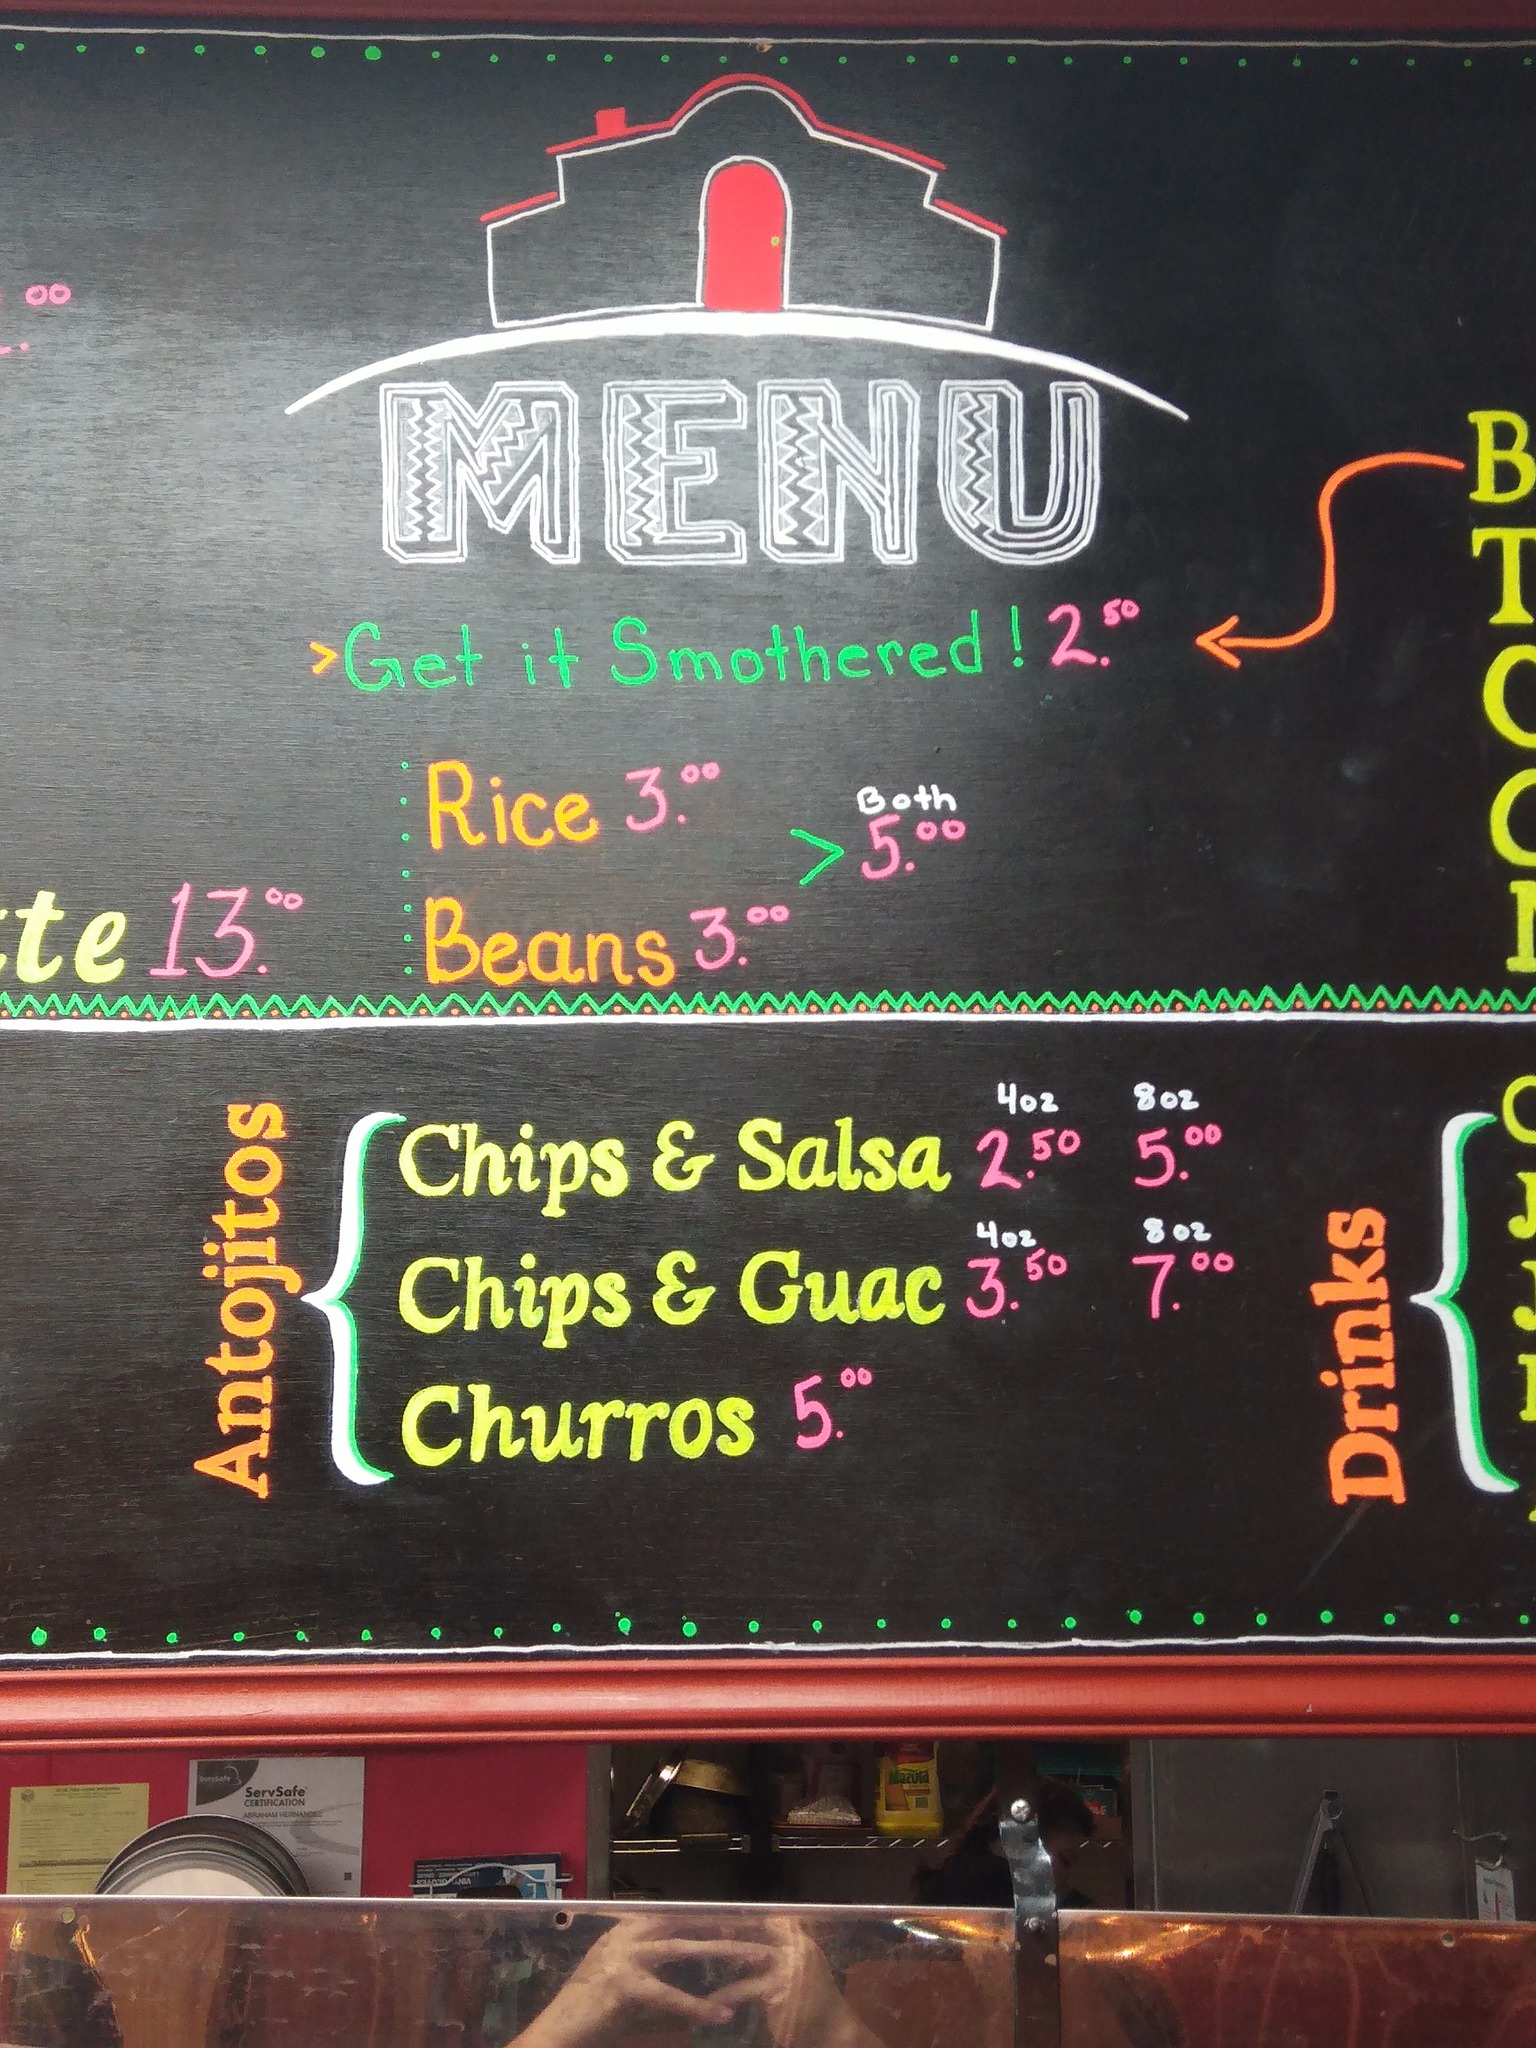 MENU
>Get it Smothered! 2.50
Rice 3.00
Both
> 5.00
Beans 3.00
13.00
Antojitos
4oz 8oz
Chips & Salsa 2.50 5.00
4oz 8oz
Chips & Guac 3.50 7.00
Churros 5.00
Drinks
ServSafe
ServSafe
CERTIFICATION
ABRAHAM HERNANDEZ
Mazola